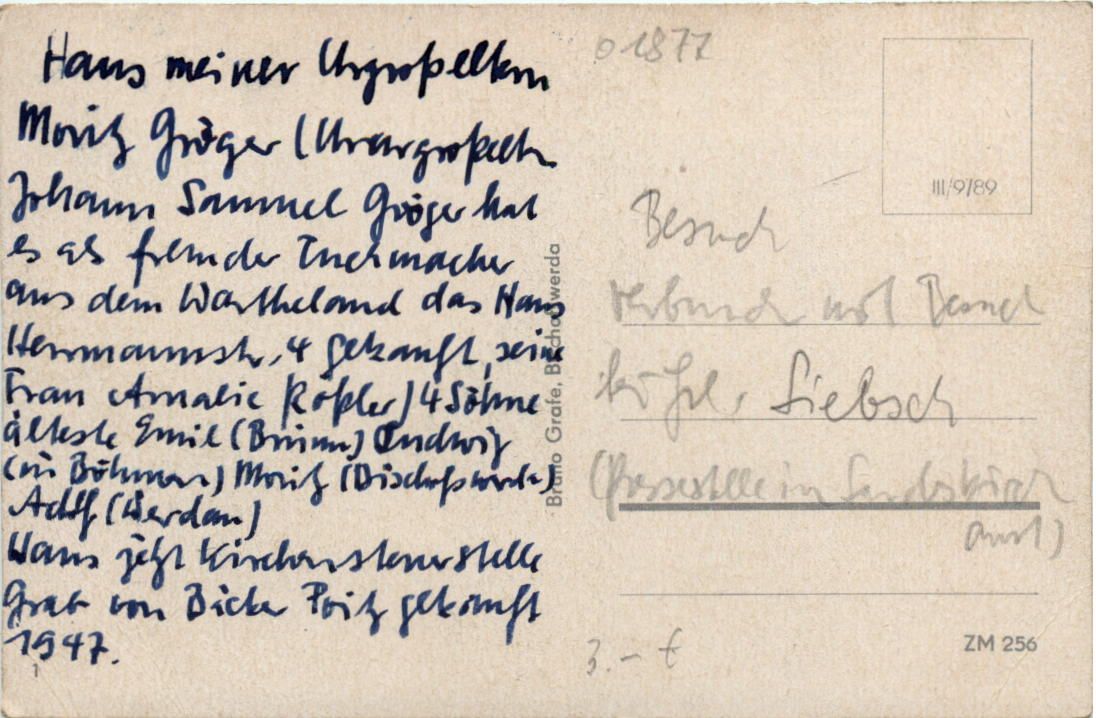 Haus meiner Urgroßeltern
Moritz Gröger (Ururgroßeltern
Johann Samuel Gröger hat
es als fremder Tuchmacher
aus dem Wartheland das Haus
Herrmannstr. 4 gekauft, seine
Frau Amalie Rößler) 4 Söhne
älteste Emil (Brünn) Ludwig
(in Böhmen) Moritz (Bischofswerda)
Adolf (Werdau)
Haus jetzt Kirchensteuerstelle
Grab von Bäcker gekauft
1947.
1
Bruno Grafe, Bischofswerda
01877
III/9/89
Besuch
verbunden mit Besuch
bei Frl. Siebsch
(Pressestelle im Landeskirch
amt)
3.- €
ZM 256